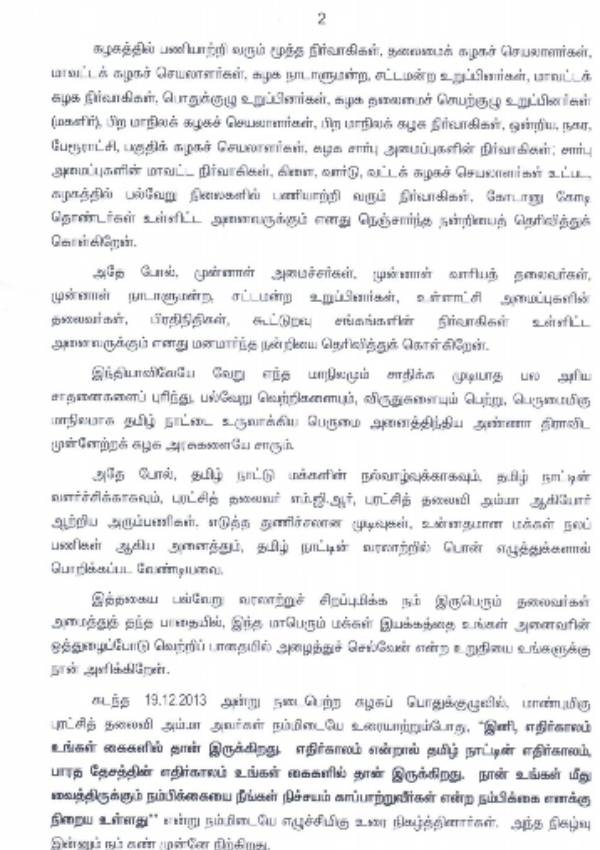 2
கழகத்தில் பணியாற்றி வரும் மூத்த நிர்வாகிகள், தலைமைக் கழகச் செயலாளர்கள்,
மாவட்டக் கழகச் செயலாளர்கள், கழக நாடாளுமன்ற, சட்டமன்ற உறுப்பினர்கள், மாவட்டக்
கழக நிர்வாகிகள், பொதுக்குழு உறுப்பினர்கள், கழக தலைமைச் செயற்குழு உறுப்பினர்கள்
(மகளிர்), பிற மாநிலக் கழகச் செயலாளர்கள், பிற மாநிலக் கழக நிர்வாகிகள், ஒன்றிய, நகர,
பேரூராட்சி, பகுதிக் கழகச் செயலாளர்கள், கழக சார்பு அமைப்புகளின் நிர்வாகிகள்; சார்பு
அமைப்புகளின் மாவட்ட நிர்வாகிகள், கிளை, வார்டு, வட்டக் கழகச் செயலாளர்கள் உட்பட,
கழகத்தில் பல்வேறு நிலைகளில் பணியாற்றி வரும் நிர்வாகிகள், கோடானு கோடி
தொண்டர்கள் உள்ளிட்ட அனைவருக்கும் எனது நெஞ்சார்ந்த நன்றியைத் தெரிவித்துக்
கொள்கிறேன்.
அதே போல், முன்னாள் அமைச்சர்கள், முன்னாள் வாரியத் தலைவர்கள்,
முன்னாள் நாடாளுமன்ற, சட்டமன்ற உறுப்பினர்கள், உள்ளாட்சி அமைப்புகளின்
தலைவர்கள், பிரதிநிதிகள், கூட்டுறவு சங்கங்களின் நிர்வாகிகள் உள்ளிட்ட
அனைவருக்கும் எனது மனமார்ந்த நன்றியை தெரிவித்துக் கொள்கிறேன்.
இந்தியாவிலேயே வேறு எந்த மாநிலமும் சாதிக்க முடியாத பல அரிய
சாதனைகளைப் புரிந்து, பல்வேறு வெற்றிகளையும், விருதுகளையும் பெற்று, பெருமைமிகு
மாநிலமாக தமிழ் நாட்டை உருவாக்கிய பெருமை அனைத்திந்திய அண்ணா திராவிட
முன்னேற்றக் கழக அரசுகளையே சாரும்.
அதே போல், தமிழ் நாட்டு மக்களின் நல்வாழ்வுக்காகவும், தமிழ் நாட்டின்
வளர்ச்சிக்காகவும், புரட்சித் தலைவர் எம்.ஜி.ஆர், புரட்சித் தலைவி அம்மா ஆகியோர்
ஆற்றிய அரும்பணிகள், எடுத்த துணிச்சலான முடிவுகள், உன்னதமான மக்கள் நலப்
பணிகள் ஆகிய அனைத்தும், தமிழ் நாட்டின் வரலாற்றில் பொன் எழுத்துக்களால்
பொறிக்கப்பட வேண்டியவை.
இத்தகைய பல்வேறு வரலாற்றுச் சிறப்புமிக்க நம் இருபெரும் தலைவர்கள்
அமைத்துத் தந்த பாதையில், இந்த மாபெரும் மக்கள் இயக்கத்தை உங்கள் அனைவரின்
ஒத்துழைப்போடு வெற்றிப் பாதையில் அழைத்துச் செல்வேன் என்ற உறுதியை உங்களுக்கு
நான் அளிக்கிறேன்.
கடந்த 19.12.2013 அன்று நடைபெற்ற கழகப் பொதுக்குழுவில், மாண்புமிகு
புரட்சித் தலைவி அம்மா அவர்கள் நம்மிடையே உரையாற்றும்போது, "இனி, எதிர்காலம்
உங்கள் கைகளில் தான் இருக்கிறது. எதிர்காலம் என்றால் தமிழ் நாட்டின் எதிர்காலம்,
பாரத தேசத்தின் எதிர்காலம் உங்கள் கைகளில் தான் இருக்கிறது. நான் உங்கள் மீது
வைத்திருக்கும் நம்பிக்கையை நீங்கள் நிச்சயம் காப்பாற்றுவீர்கள் என்ற நம்பிக்கை எனக்கு
நிறைய உள்ளது" என்று நம்மிடையே எழுச்சிமிகு உரை நிகழ்த்தினார்கள். அந்த நிகழ்வு
இன்னும் நம் கண் முன்னே நிற்கிறது.